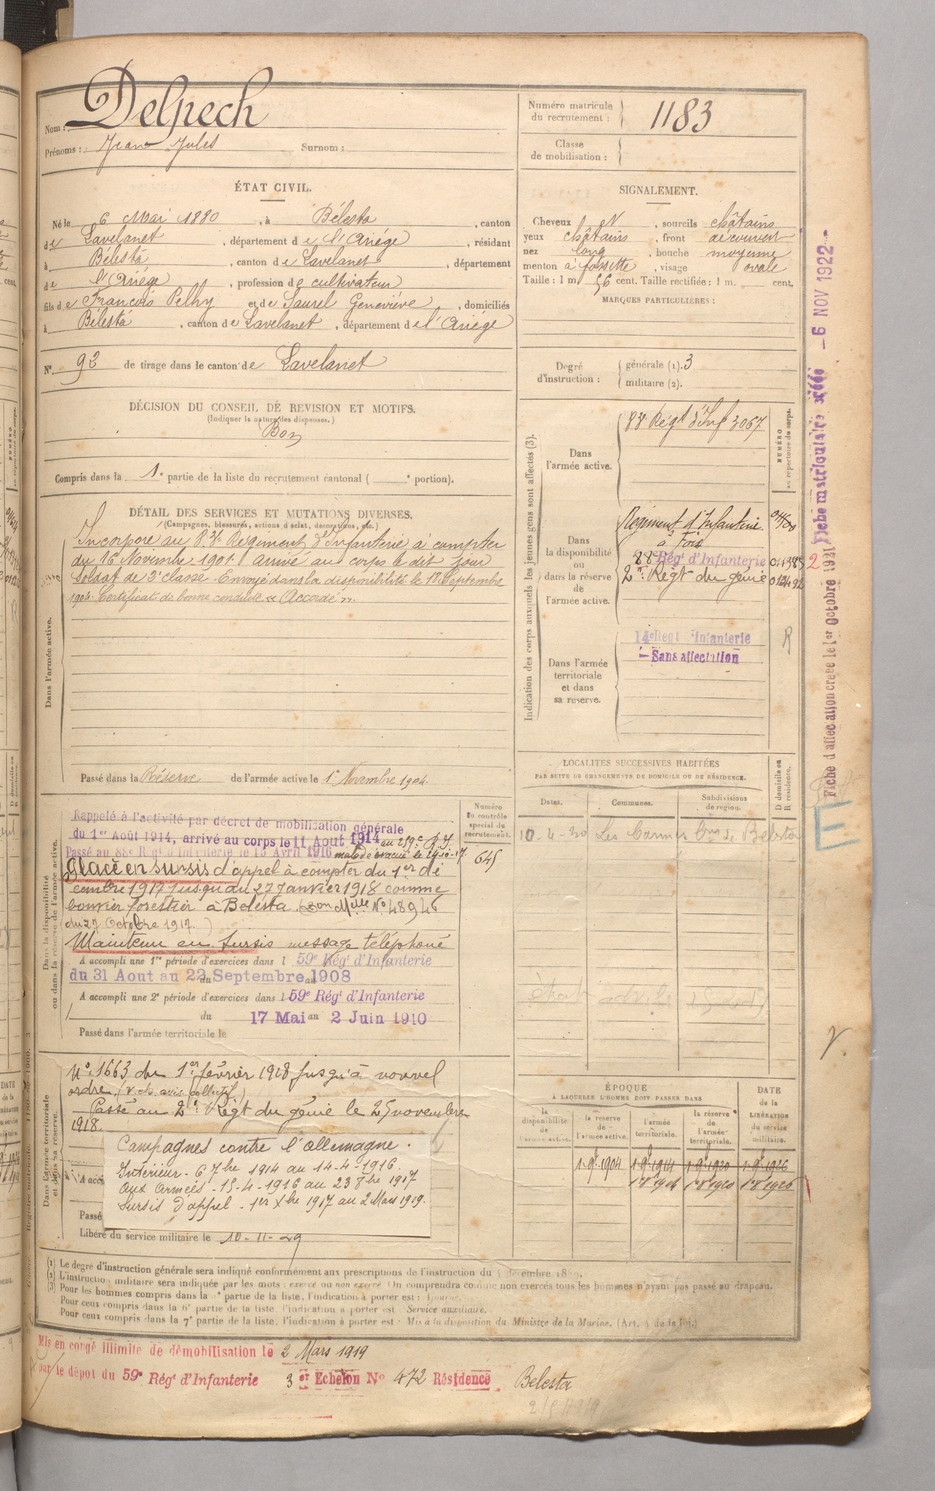 Nom : Delpech
Prénoms : Jean Jules Surnom :
Numéro matricule
du recrutement : 1183
Classe
de mobilisation :
ÉTAT CIVIL.
Né le 6 Mai 1880, à Bélesta, canton
de Lavelanet, département de l'Ariége, résidant
à Bélesta, canton de Lavelanet, département
de l'Ariége, profession de cultivateur
fils de François Pelhy et de Saurel Geneviève, domiciliés
à Bélesta, canton de Lavelanet, département de l'Ariége
N° 92 de tirage dans le canton de Lavelanet
SIGNALEMENT.
Cheveux N, sourcils châtains
yeux châtains, front découvert
nez long, bouche moyenne
menton à fossette, visage ovale
Taille : 1 m 56 cent. Taille rectifiée : 1 m. cent.
MARQUES PARTICULIÈRES :
Degré
d'instruction :
générale (1). 3
militaire (2).
DÉCISION DU CONSEIL DE REVISION ET MOTIFS.
(Indiquer la nature des dispenses.)
Bon
Compris dans la 1e partie de la liste du recrutement cantonal ( portion).
DÉTAIL DES SERVICES ET MUTATIONS DIVERSES.
(Campagnes, blessures, actions d'éclat, décorations, etc.)
Dans l'armée active.
Incorporé au 83e Régiment d'Infanterie à compter
du 16 Novembre 1901 Arrivé au corps le dit jour
Soldat de 2e classe. Envoyé dans la disponibilité le 18 Septembre
1904. Certificat de bonne conduite « Accordé ».
Passé dans la Réserve de l'armée active le 1er Novembre 1904
Indication des corps auxquels les jeunes gens sont affectés (3).
NUMÉRO
au répertoire du corps.
Dans
l'armée active.
83e Régt d'Inf 3067
Dans
la disponibilité
ou
dans la réserve
de
l'armée active.
Régiment d'Infanterie
à Foix
Régt d'Infanterie
2e Régt du génie
Dans l'armée
territoriale
et dans
sa reserve.
Sans affectation
R
LOCALITÉS SUCCESSIVES HABITÉES
PAR SUITE DE CHANGEMENTS DE DOMICILE OU DE RÉSIDENCE.
Dates. Communes. Subdivisions
de region.
D domicile ou
R résidence.
10-4-30 Les Carmes Cne de Bélesta
Numéro
au contrôle
spécial du
recrutement.
645
Rappelé à l'activité par décret de mobilisation générale
du 1er Août 1914, arrivé au corps le 11 Août 1914 au 259e R.I.
Placé en sursis d'appel à compter du 1er dé
cembre 1917 jusqu'au 27 Janvier 1918 comme
bouvier forestier à Bélesta (son Mlle N° 48946
du 27 Octobre 1917.)
Maintenu en sursis message téléphoné
A accompli une 1re période d'exercices dans l 59e Régt d'Infanterie
du 31 Aout au 22 Septembre 1908
A accompli une 2e période d'exercices dans l 59e Régt d'Infanterie
du 17 Mai au 2 Juin 1910
Passé dans l'armée territoriale le
N° 1663 du 1er février 1918 jusqu'à nouvel
ordre (v. ch. avis collectif)
Passé au 2e Régt du génie le 25 novembre
1918.
Campagnes contre l'Allemagne.
Intérieur - 6 7bre 1914 au 14-4-1916.
Aux Armées - 15-4-1916 au 23 8bre 1917
Sursis d'appel - 1er Xbre 1917 au 2 Mars 1919.
Libéré du service militaire le 10-11-29
ÉPOQUE
À LAQUELLE L'HOMME DOIT PASSER DANS
la
disponibilité
de l'armée active.
la réserve
de
l'armée active.
l'armée
territoriale.
la réserve
de
l'armée
territoriale.
DATE
de la
LIBÉRATION
du service
militaire.
(1) Le degré d'instruction générale sera indiqué conformément aux prescriptions de l'instruction du
(2) L'instruction militaire sera indiquée par les mots : exercé ou non exercé. On comprendra comme non exercés tous les hommes n'ayant pas passé au drapeau.
Pour ceux compris dans la 6e partie de la liste, l'indication à porter est : Service auxiliaire.
Pour ceux compris dans la 7e partie de la liste, l'indication à porter est : Mis à la disposition du Ministre de la Marine.
Mis en congé illimité de démobilisation le 2 Mars 1919
par le dépôt du 59e Régt d'Infanterie 3 er Echelon N° 472 Résidence Belesta
Fiche d'affectation créée le 1er Octobre 1921
Fiche matriculaire créée - 6 NOV 1922 -